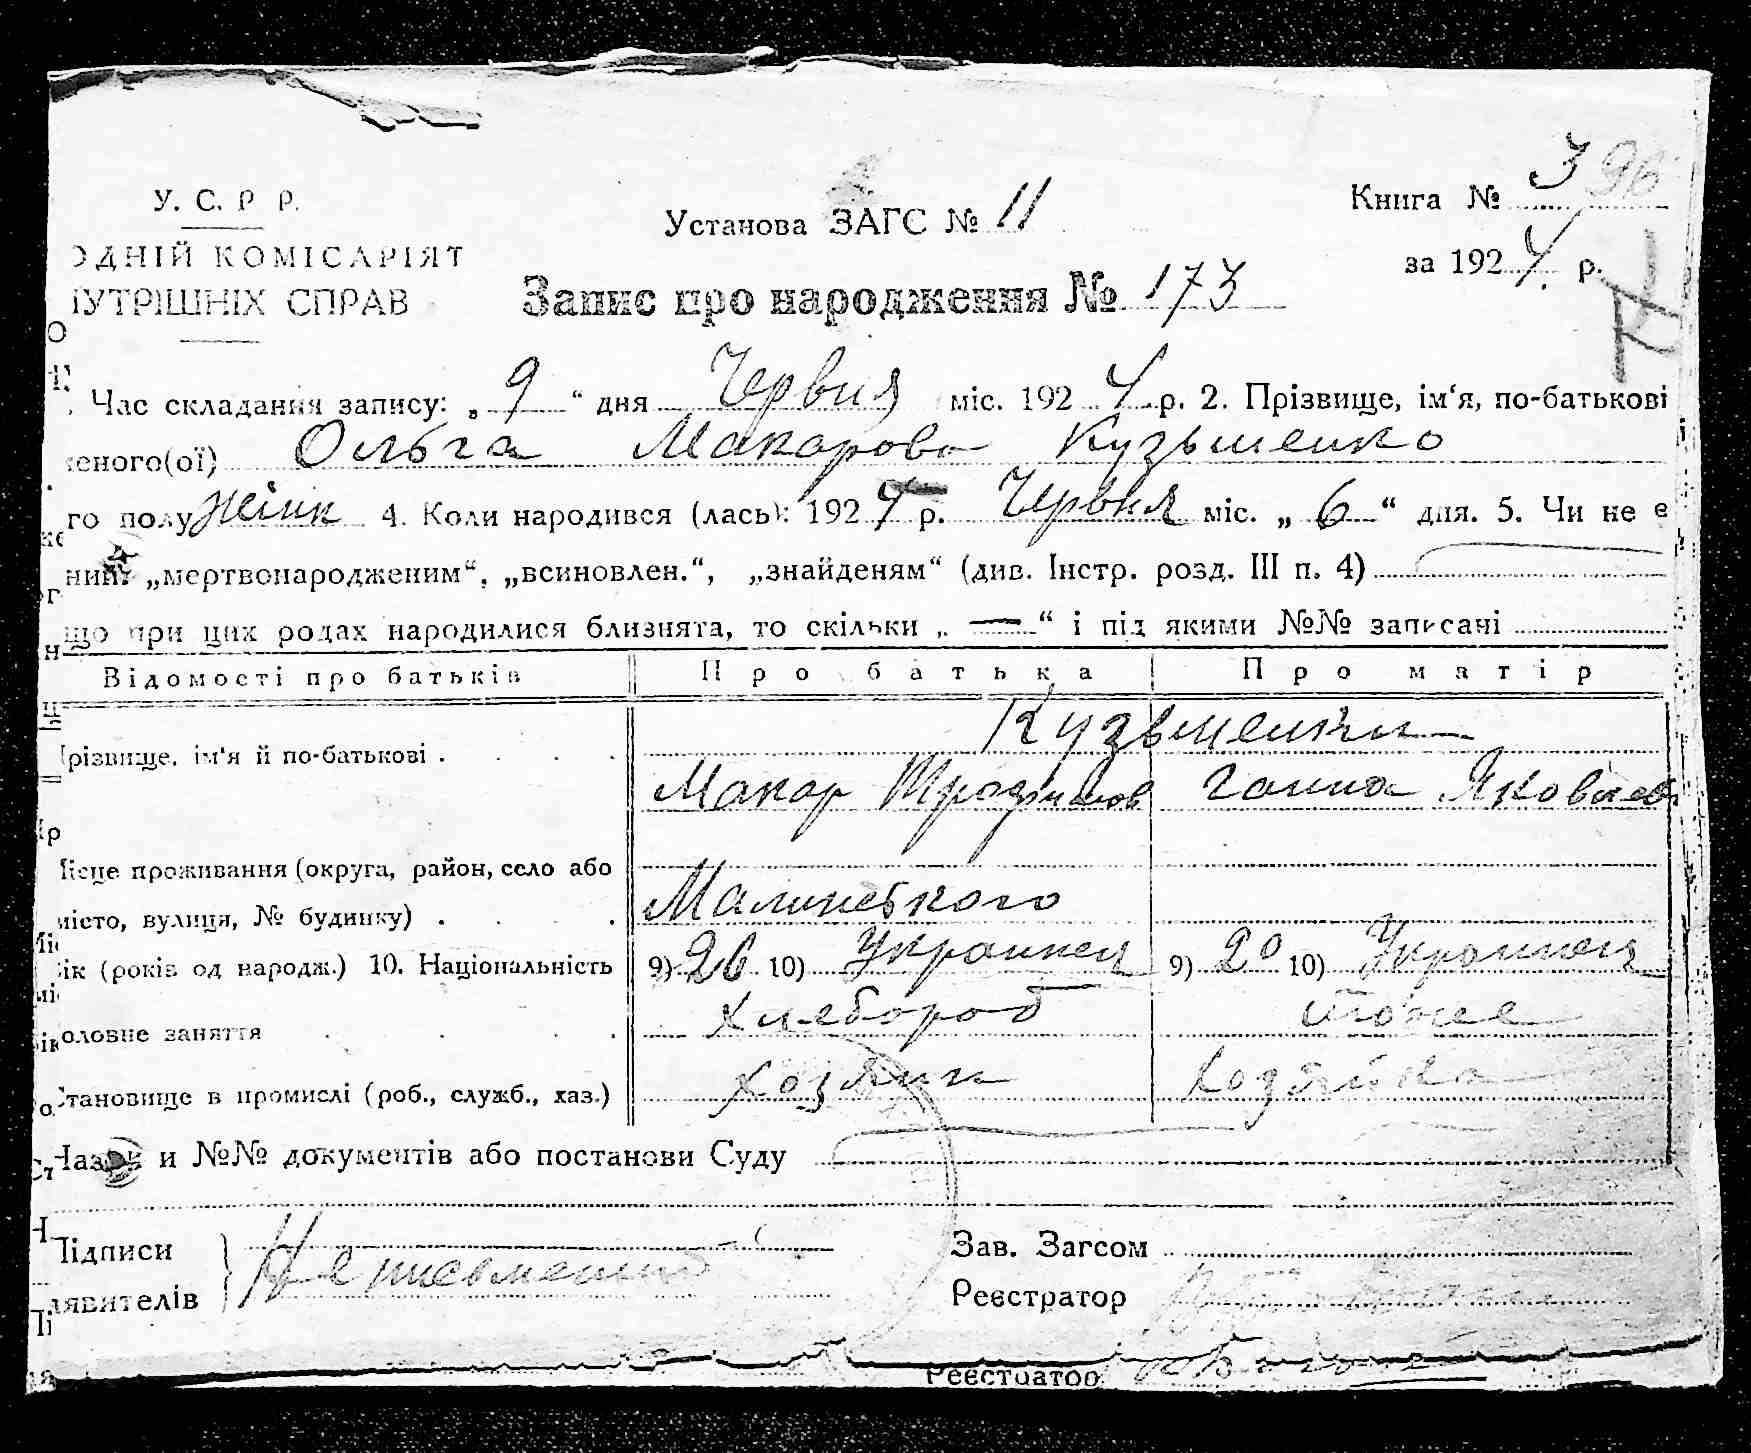 У. С. Р Р.
ОДНІЙ КОМІСАРІЯТ
НУТРІШНІХ СПРАВ
Установа ЗАГС № 11
Книга № 3 96
за 1924 р.
Запис про народження № 173
Час складання запису: „9“ дня Червня міс. 1924 р. 2. Прізвище, ім‘я, по-батькові
еного(ої) Ольга Макарова Кузьменко
го полу жінк 4. Коли народився (лась): 1924 р. Червня міс. „6“ дня. 5. Чи не є
ним „мертвонародженим“, „всиновлен.“, „знайденям“ (див. Інстр. розд. III п. 4)
що при цих родах народилися близнята, то скільки „—“ і під якими №№ записані
Відомості про батьків Про батька Про матір
Кузьменки
різвище, ім‘я й по-батькові . . . .
Макар Ганна Яковлев
ісце проживання (округа, район, село або
місто, вулиця, № будинку) . . . Малинського
ік (років од народж.) 10. Національність 9) 26 10) Украинец 9) 20 10) Украинец
оловне заняття . . . Хлебороб тоже
Становище в промислі (роб., служб., хаз.) хозяин хозяйка
Назви и №№ документів або постанови Суду
Підписи
аявителів
Неписьменный
Зав. Загсом
Реєстратор
Реєстратор